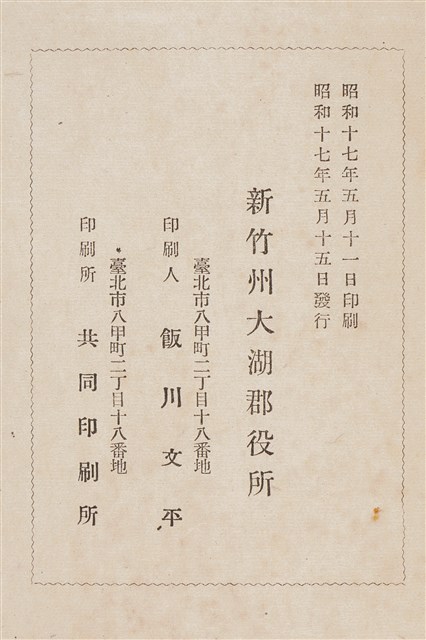 昭和十七年五月十一日印刷
昭和十七年五月十五日發行
新竹州大湖郡役所
臺北市八甲町二丁目十八番地
印刷人 飯川文平
臺北市八甲町二丁目十八番地
印刷所 共同印刷所